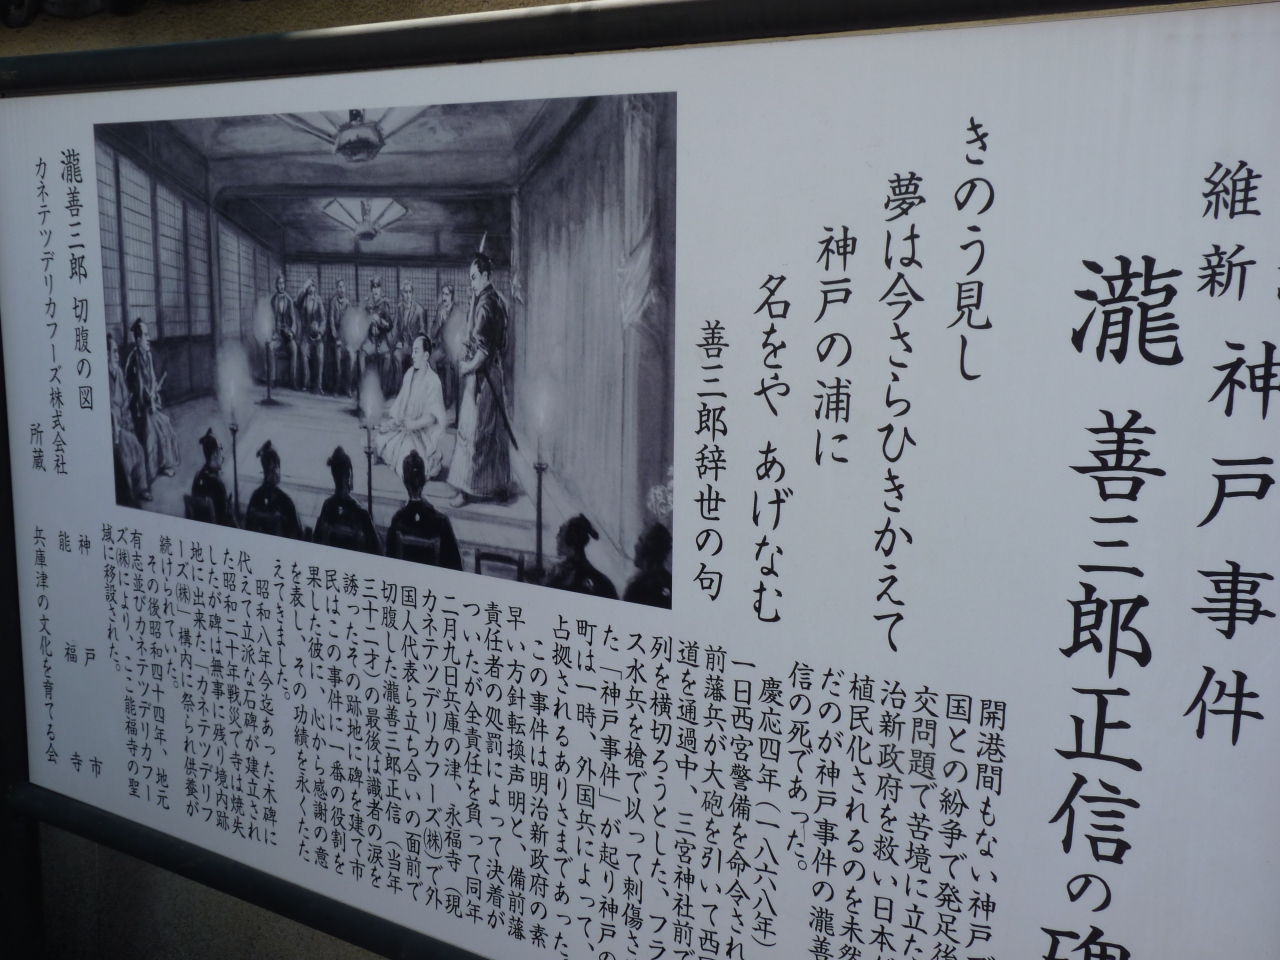 維新 神戸事件
瀧 善三郎正信の碑
きのう見し
夢は今さらひきかえて
神戸の浦に
名をや あげなむ
善三郎辞世の句
開港間もない神戸で
国との紛争で発足後
交問題で苦境に立た
治新政府を救い日本が
植民化されるのを未然
だのが神戸事件の瀧善
信の死であった。
慶応四年(一八六八年)
一日西宮警備を命令され
前藩兵が大砲を引いて西国
道を通過中、三宮神社前で
列を横切ろうとした、フラ
ス水兵を槍で以って刺傷さ
た「神戸事件」が起り神戸の
町は一時、外国兵によって、
占拠されるありさまであった。
この事件は明治新政府の素
早い方針転換声明と、備前藩
責任者の処罰によって決着が
ついたが全責任を負って同年
二月九日兵庫の津、永福寺(現
カネテツデリカフーズ㈱)で外
国人代表ら立ち合いの面前で
切腹した瀧善三郎正信(当年
三十二才)の最後は識者の涙を
誘ったその跡地に碑を建て市
民はこの事件に一番の役割を
果した彼に、心から感謝の意
を表し、その功績を永くたた
えてきました。
昭和八年今迄あった木碑に
代えて立派な石碑が建立され
た昭和二十年戦災で寺は焼失
したが碑は無事に残り境内跡
地に出来た「カネテツデリフ
ーズ㈱」構内に祭られ供養が
続けられていた。
その後昭和四十四年、地元
有志並びカネテツデリカフー
ズ㈱により、ここ能福寺の聖
域に移設された。
神戸市
能福寺
兵庫津の文化を育てる会
瀧善三郎 切腹の図
カネテツデリカフーズ株式会社 所蔵